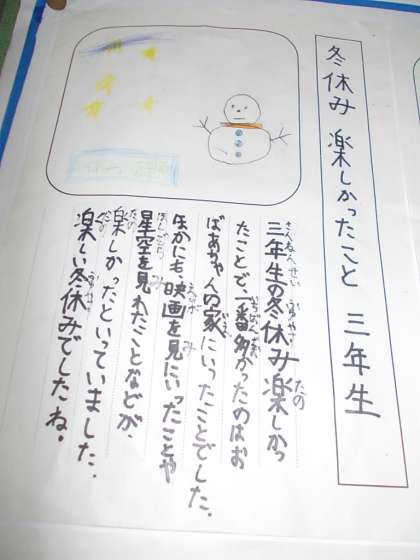 冬休み 楽しかったこと 三年生
三年生の冬休み楽しかっ
たことで、一番多かったのはお
ばあちゃんの家にいったことでした。
ほかにも、映画を見にいったことや
星空を見れたことなどが、
楽しかったといっていました。
楽しい冬休みでしたね。